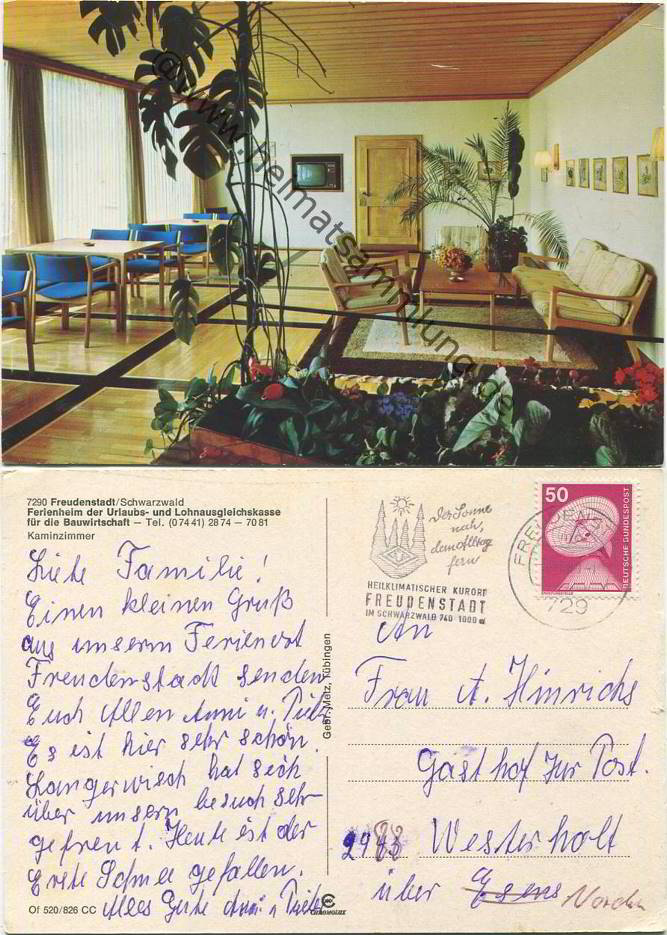 © www.heimatsammlung.de
7290 Freudenstadt/Schwarzwald
Ferienheim der Urlaubs- und Lohnausgleichskasse
für die Bauwirtschaft – Tel. (07441) 2874 – 7081
Kaminzimmer
Liebe Familie!
Einen kleinen Gruß
aus unserm Ferienort
Freudenstadt senden
Euch Allen Anni u.
Es ist hier sehr schön.
Langerwisch hat sich
über unsern besuch sehr
gefreut. Heute ist der
Erste Schnee gefallen.
Alles Gute Anni u
Of 520/826 CC
CHROMOLUX
Gebr. Metz, Tübingen
Der Sonne
nah,
dem Alltag
fern
HEILKLIMATISCHER KURORT
FREUDENSTADT
IM SCHWARZWALD 740 - 1000 m
FREUDENS
729
50
DEUTSCHE BUNDESPOST
An
Frau A. Hinrichs
Gasthof zur Post.
Westerholt
über Esens Norden